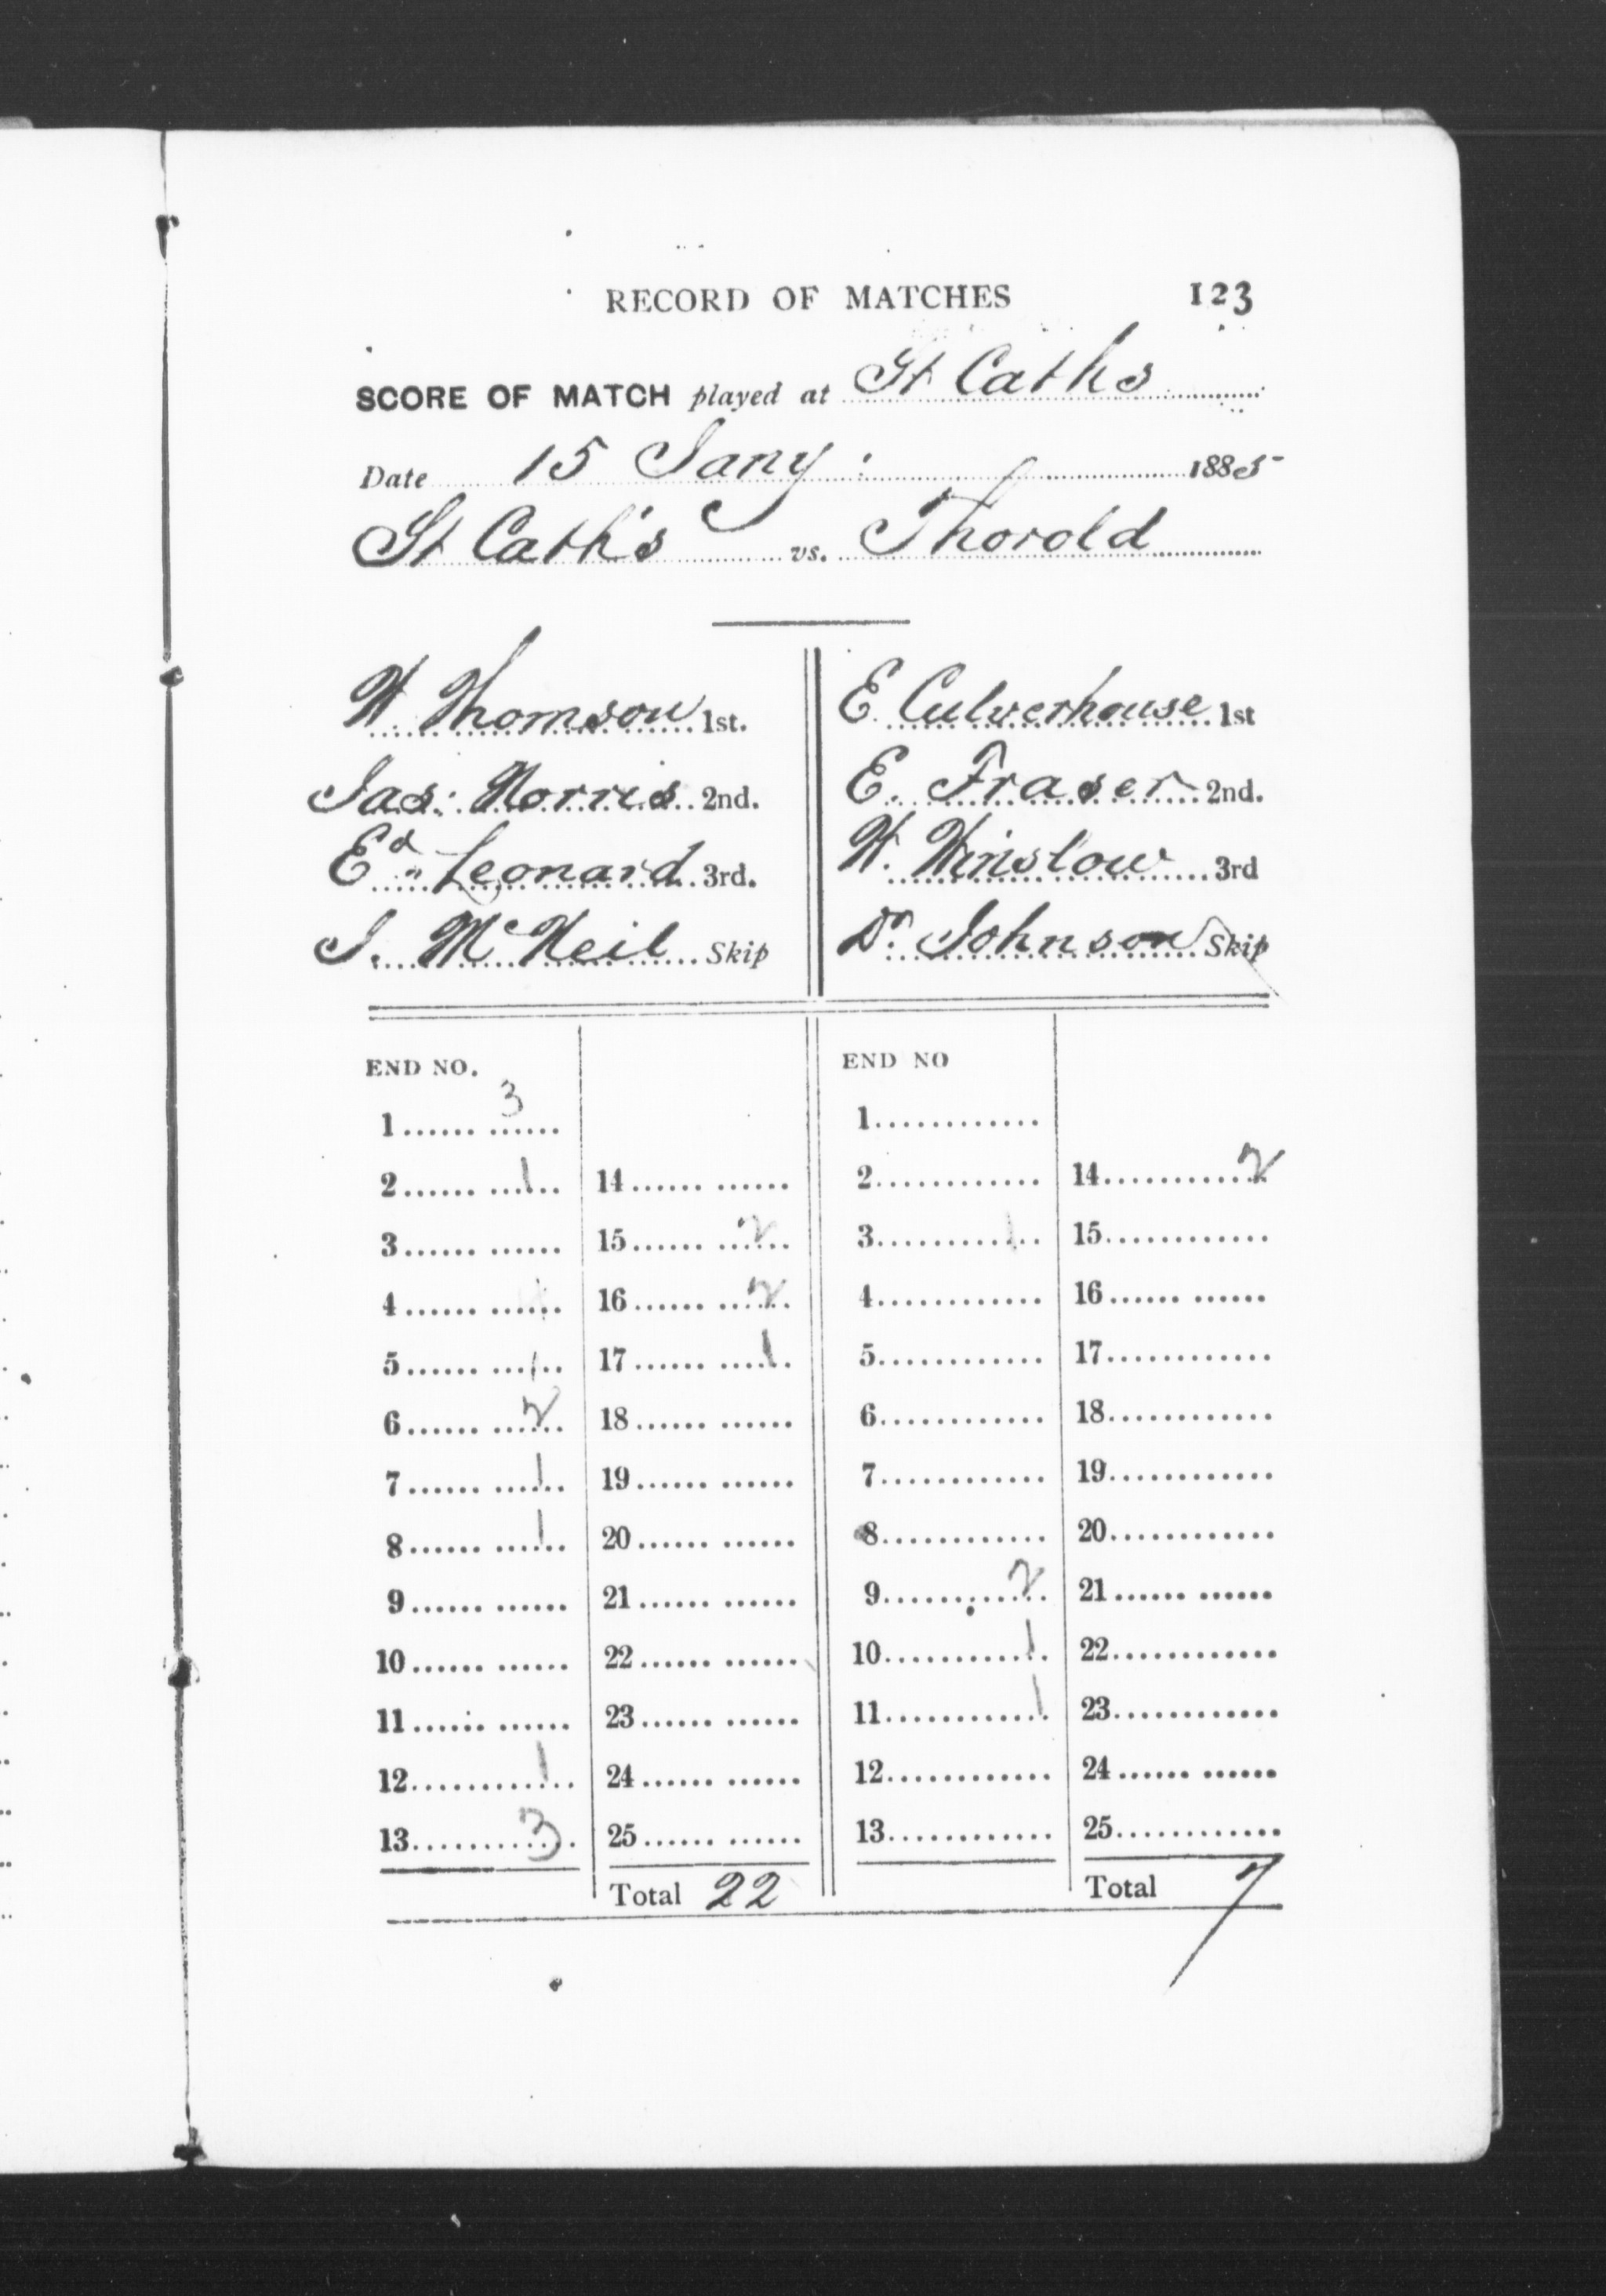 RECORD OF MATCHES 123
SCORE OF MATCH played at St Caths
Date 15 Jany: 1885
St Cath's vs. Thorold
W. Thomson 1st. E. Culverhouse 1st
Jas: Norris 2nd. E. Fraser 2nd.
Ed. Leonard 3rd. W. Winslow 3rd
J. McNeil Skip Dr. Johnson Skip
END NO. END NO
1 3 1
2 1 14 2 14 2
3 15 2 3 1 15
4 4 16 2 4 16
5 1 17 1 5 17
6 2 18 6 18
7 1 19 7 19
8 1 20 8 20
9 21 9 2 21
10 22 10 1 22
11 23 11 1 23
12 1 24 12 24
13 3 25 13 25
Total 22 Total 7